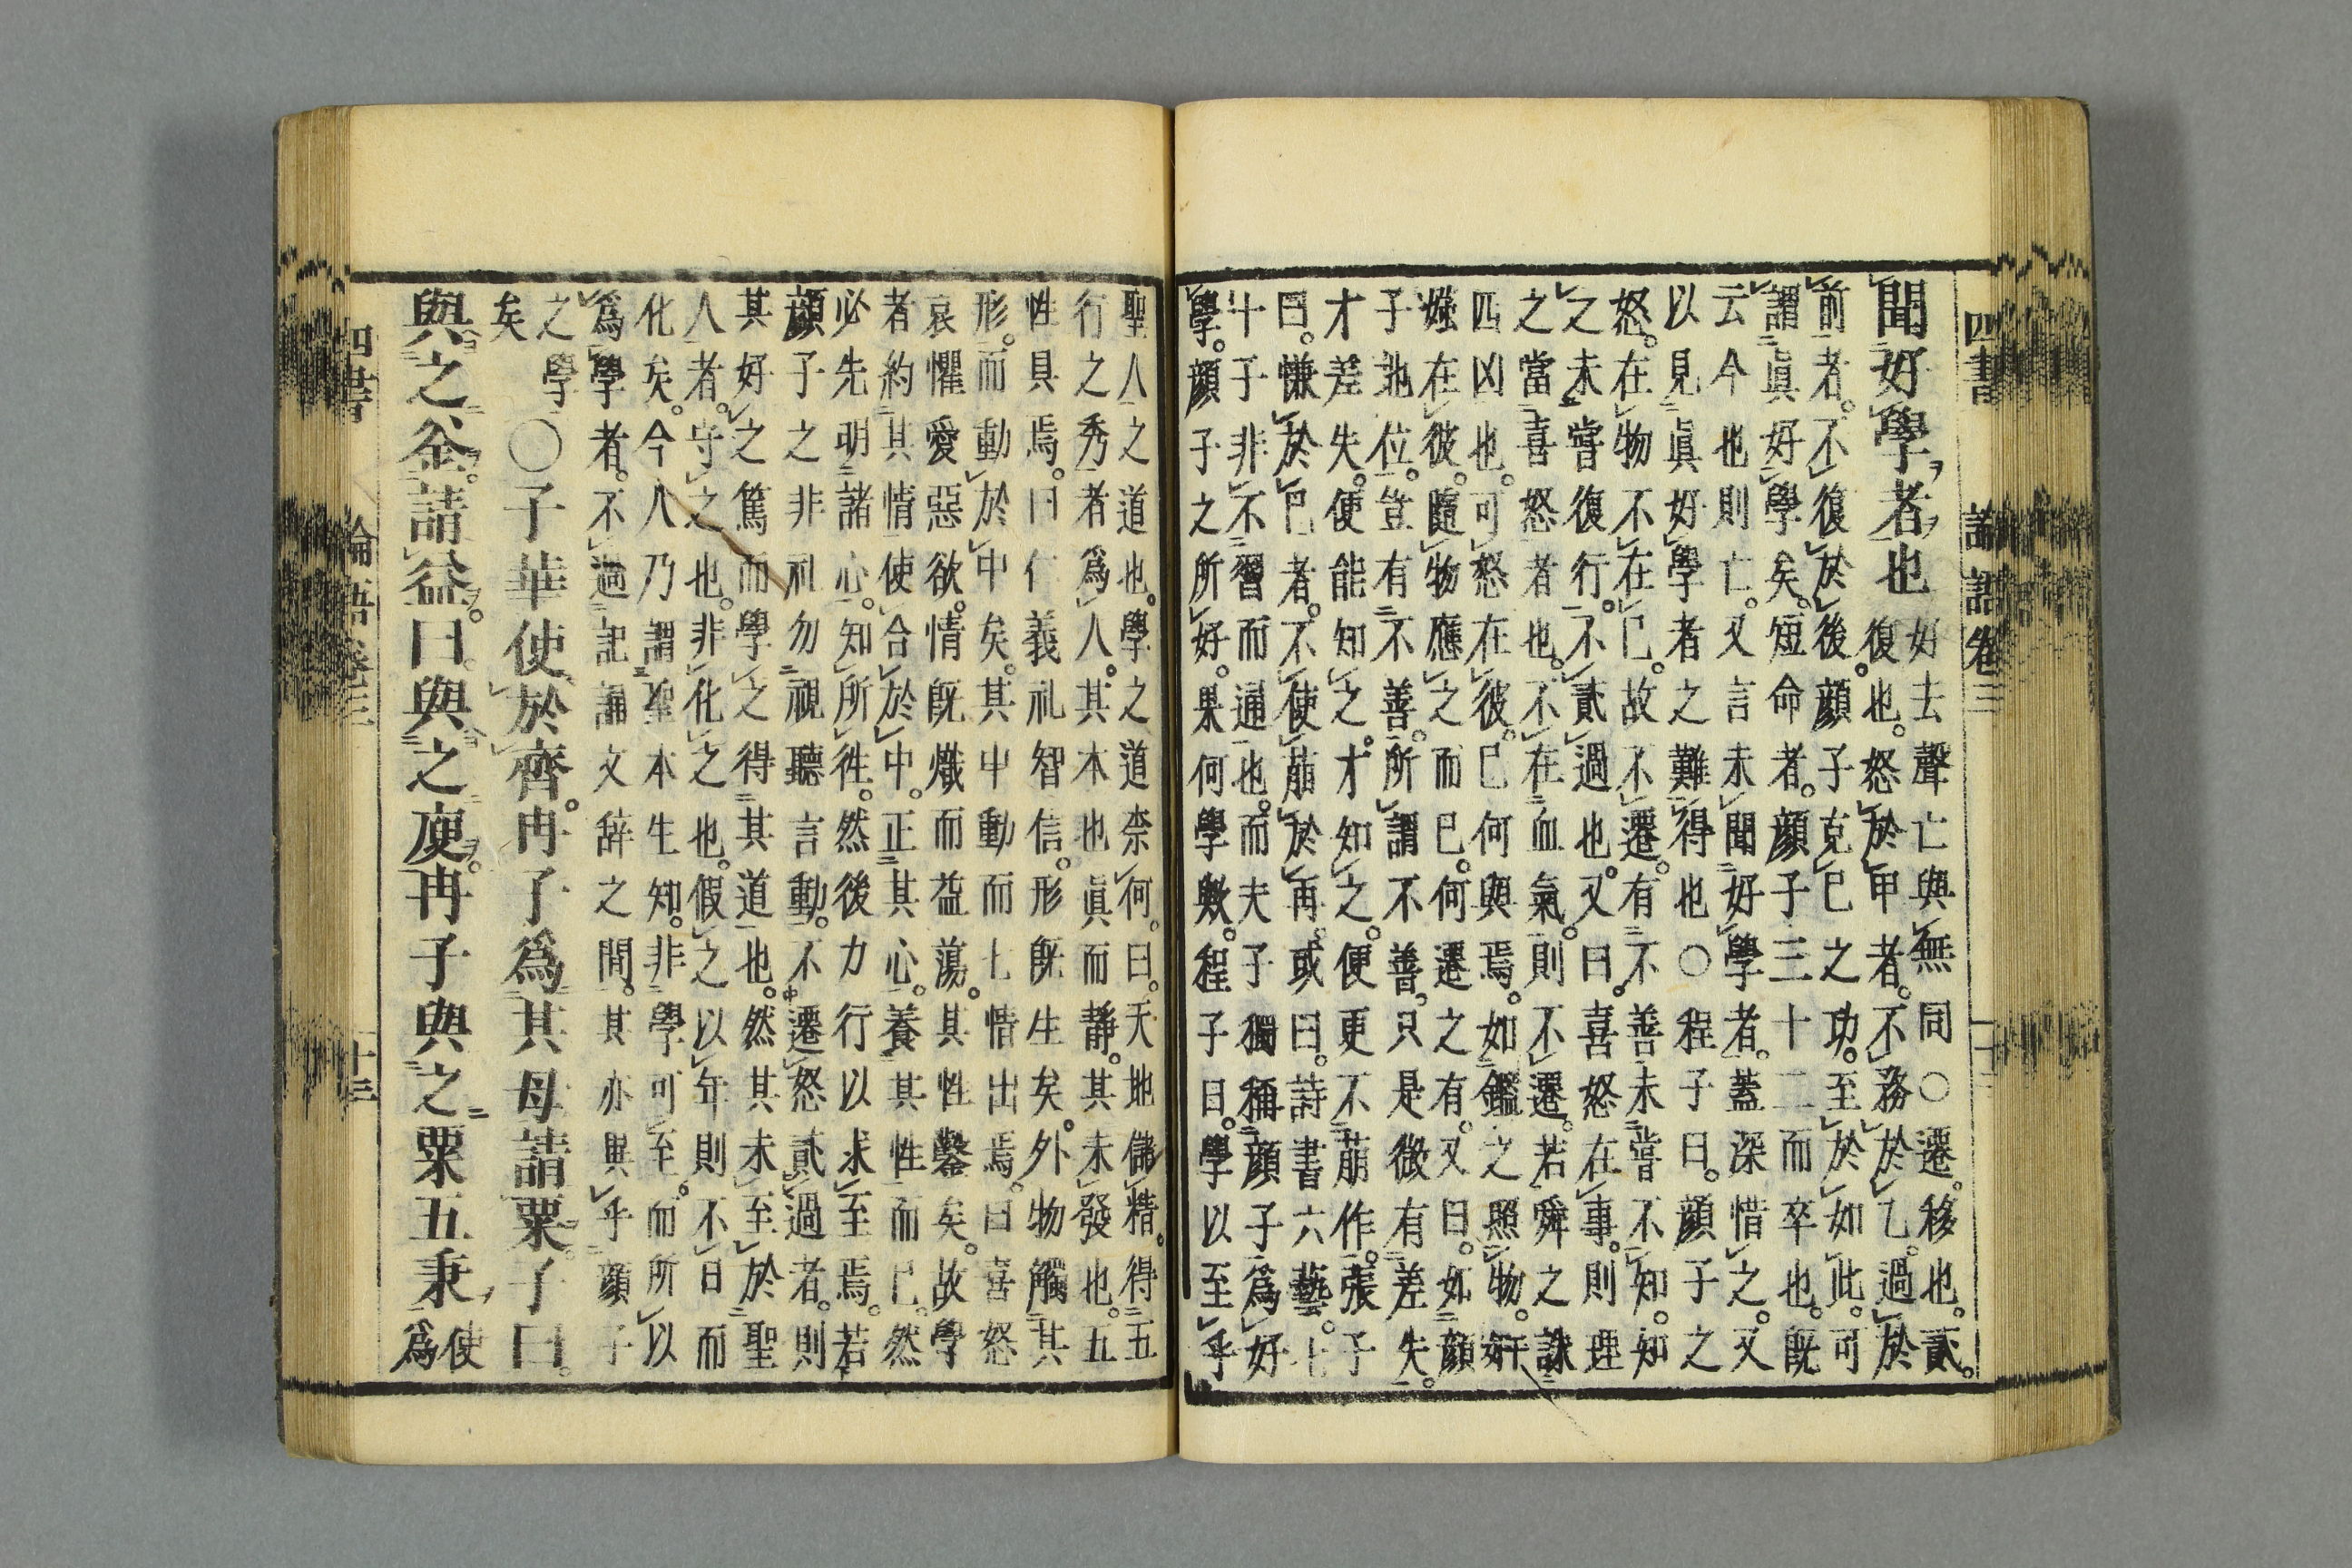 四書 論語卷三
聞好學者也
好去聲亡與無同○遷。移也。貳。
復也。怒於甲者。不務於乙。過於
前者。不復於後。顏子克己之功。至於如此。可
謂眞好學矣。短命者。顏子三十二而卒也。既
云今也則亡。又言未聞好學者。蓋深惜之。又
以見眞好學者之難得也○程子曰。顏子之
怒。在物不在己。故不遷。有不善未嘗不知。知
之未嘗復行。不貳過也。又曰。喜怒在事。則理
之當喜怒者也。不在血氣。則不遷。若舜之誅
四凶也。可怒在彼。己何與焉。如鑑之照物。妍
媸在彼。隨物應之而已。何遷之有。又曰。如顏
子地位。豈有不善。所謂不善。只是微有差失。
才差失。便能知之。才知之。便更不萌作。張子
曰。慊於己者。不使萌於再。或曰。詩書六藝。七
十子非不習而通也。而夫子獨稱顏子爲好
學。顏子之所好。果何學歟。程子曰。學以至乎
聖人之道也。學之道奈何。曰。天地儲精。得五
行之秀者爲人。其本也眞而靜。其未發也。五
性具焉。曰仁義礼智信。形既生矣。外物觸其
形。而動於中矣。其中動而七情出焉。曰喜怒
哀懼愛惡欲。情既熾而益蕩。其性鑿矣。故學
者約其情使合於中。正其心。養其性而已。然
必先明諸心。知所徃。然後力行以求至焉。若
顏子之非礼勿視聽言動。不遷怒貳過者。則
其好之篤而學之得其道也。然其未至於聖
人者。守之也。非化之也。假之以年則不日而
化矣。今人乃謂聖本生知。非學可至。而所以
爲學者。不過記誦文辞之間。其亦異乎顏子
之學
矣
○子華使於齊。冉子爲其母請粟。子曰。
與之釜。請益。曰。與之庾。冉子與之粟五秉
使
爲
四書 論語卷三 十三